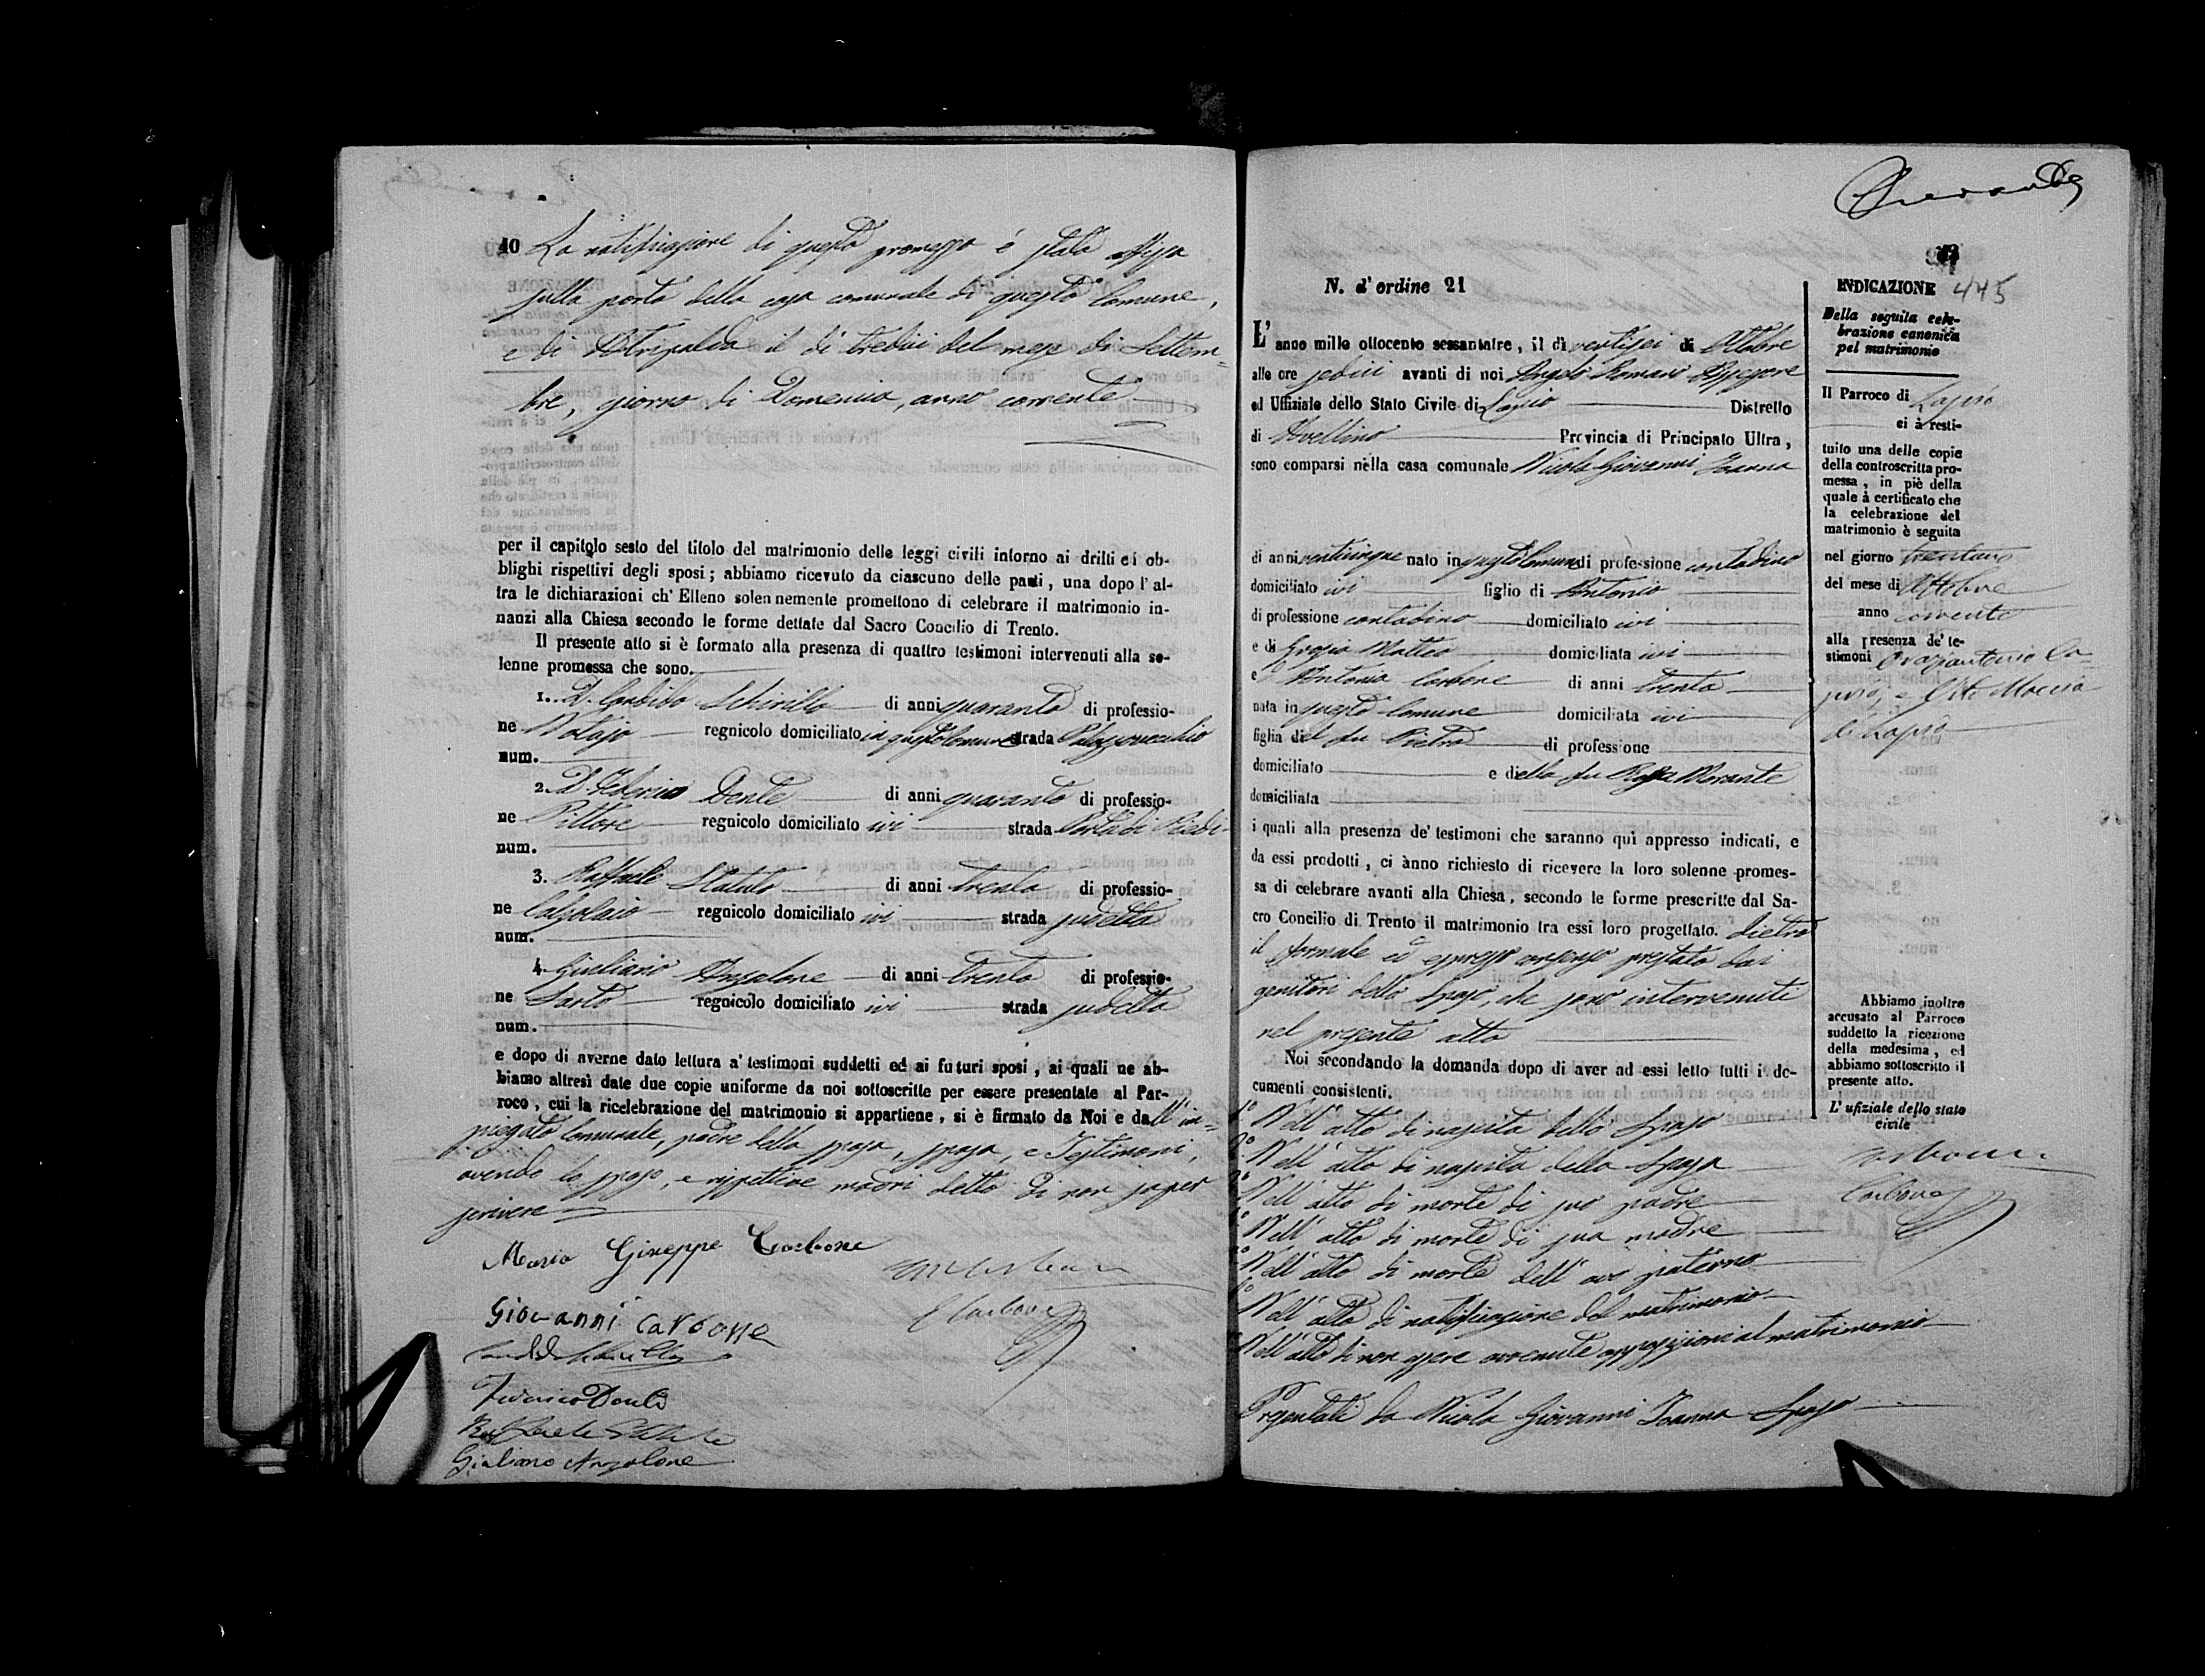 40 La notificazione di questa promessa è stata affissa
sulla porta della casa comunale di questo Comune,
e di Atripalda il dì tredici del mese di Settem=
bre, giorno di Domenica, anno corrente
per il capitolo sesto del titolo del matrimonio delle leggi civili intorno ai dritti ed ob-
blighi rispettivi degli sposi; abbiamo ricevuto da ciascuno delle parti, una dopo l' al-
tra le dichiarazioni ch' Elleno solennemente promettono di celebrare il matrimonio in-
nanzi alla Chiesa secondo le forme dettate dal Sacro Concilio di Trento.
Il presente atto si è formato alla presenza di quattro testimoni intervenuti alla so-
lenne promessa che sono.
1. D. Candido Schirillo di anni quaranta di professio-
ne Notajo regnicolo domiciliato in questo Comune strada Palazzovecchio
num.
2. D. Federico Dente di anni quaranta di professio-
ne Pittore regnicolo domiciliato ivi strada Porta di Piedi
num.
3. Raffaele Statuto di anni trenta di professio-
ne Calzolaio regnicolo domiciliato ivi strada sudetta
num.
4. Giuliano Anzalone di anni trenta di professio-
ne Sarto regnicolo domiciliato ivi strada sudetta
num.
e dopo di averne dato lettura a' testimoni suddetti ed ai futuri sposi, ai quali ne ab-
biamo altresì date due copie uniforme da noi sottoscritte per essere presentate al Par-
roco, cui la ricelebrazione del matrimonio si appartiene, si è firmato da Noi e dall' im=
piegato Comunale, padre della sposa, sposa, e Testimoni,
avendo lo sposo, e rispettive madri detto di non saper
scrivere
Maria Giuseppe Carbone
Giovanni Carbone
Carbone
Federico Dente
Raffaele Statuto
Giuliano Anzalone
N. d' ordine 21
L' anno mille ottocento sessantatre, il dì ventisei di Ottobre
alle ore sedici avanti di noi Angelo Romano Assessore
ed Uffiziale dello Stato Civile di Lapio Distretto
di Avellino Provincia di Principato Ultra,
sono comparsi nella casa comunale Nicola Giovanni Ioanna
di anni venticinque nato in questo Comune di professione contadino
domiciliato ivi figlio di Antonio
di professione contadino domiciliato ivi
e di Grazia Matteo domiciliata ivi
e Antonia Carbone di anni trenta
nata in questo Comune domiciliata ivi
figlia del fu Pietro di professione
domiciliato e della fu Rosa Morante
domiciliata
i quali alla presenza de' testimoni che saranno quì appresso indicati, e
da essi prodotti, ci ànno richiesto di ricevere la loro solenne promes-
sa di celebrare avanti alla Chiesa, secondo le forme prescritte dal Sa-
cro Concilio di Trento il matrimonio tra essi loro progettato. Dietro
il formale ed espresso consenso prestato dai
genitori dello Sposo, che sono intervenuti
nel presente atto
Noi secondando la domanda dopo di aver ad essi letto tutti i do-
cumenti consistenti.
1° Nell' atto di nascita dello Sposo
2° Nell' atto di nascita della Sposa
3° Nell' atto di morte di suo padre
4° Nell' atto di morte di sua madre
5° Nell' atto di morte dell' avo paterno
6° Nell' atto di notificazione del matrimonio
Nell' atto di non essere avvenute opposizioni al matrimonio
Presentati da Nicola Giovanni Ioanna Sposo
445
INDICAZIONE
Della seguita cele-
brazione canonica
pel matrimonio
Il Parroco di Lapio
ci à resti-
tuito una delle copie
della controscritta pro-
messa, in piè della
quale à certificato che
la celebrazione del
matrimonio è seguita
nel giorno trentuno
del mese di Ottobre
anno corrente
alla presenza de' te-
stimoni Oraziantonio Ca-
ruso, e Vito Moccia
di Lapio
Abbiamo inoltre
accusato al Parroco
suddetto la ricezione
della medesima, ed
abbiamo sottoscritto il
presente atto.
L' ufiziale dello stato
civile
Carbone